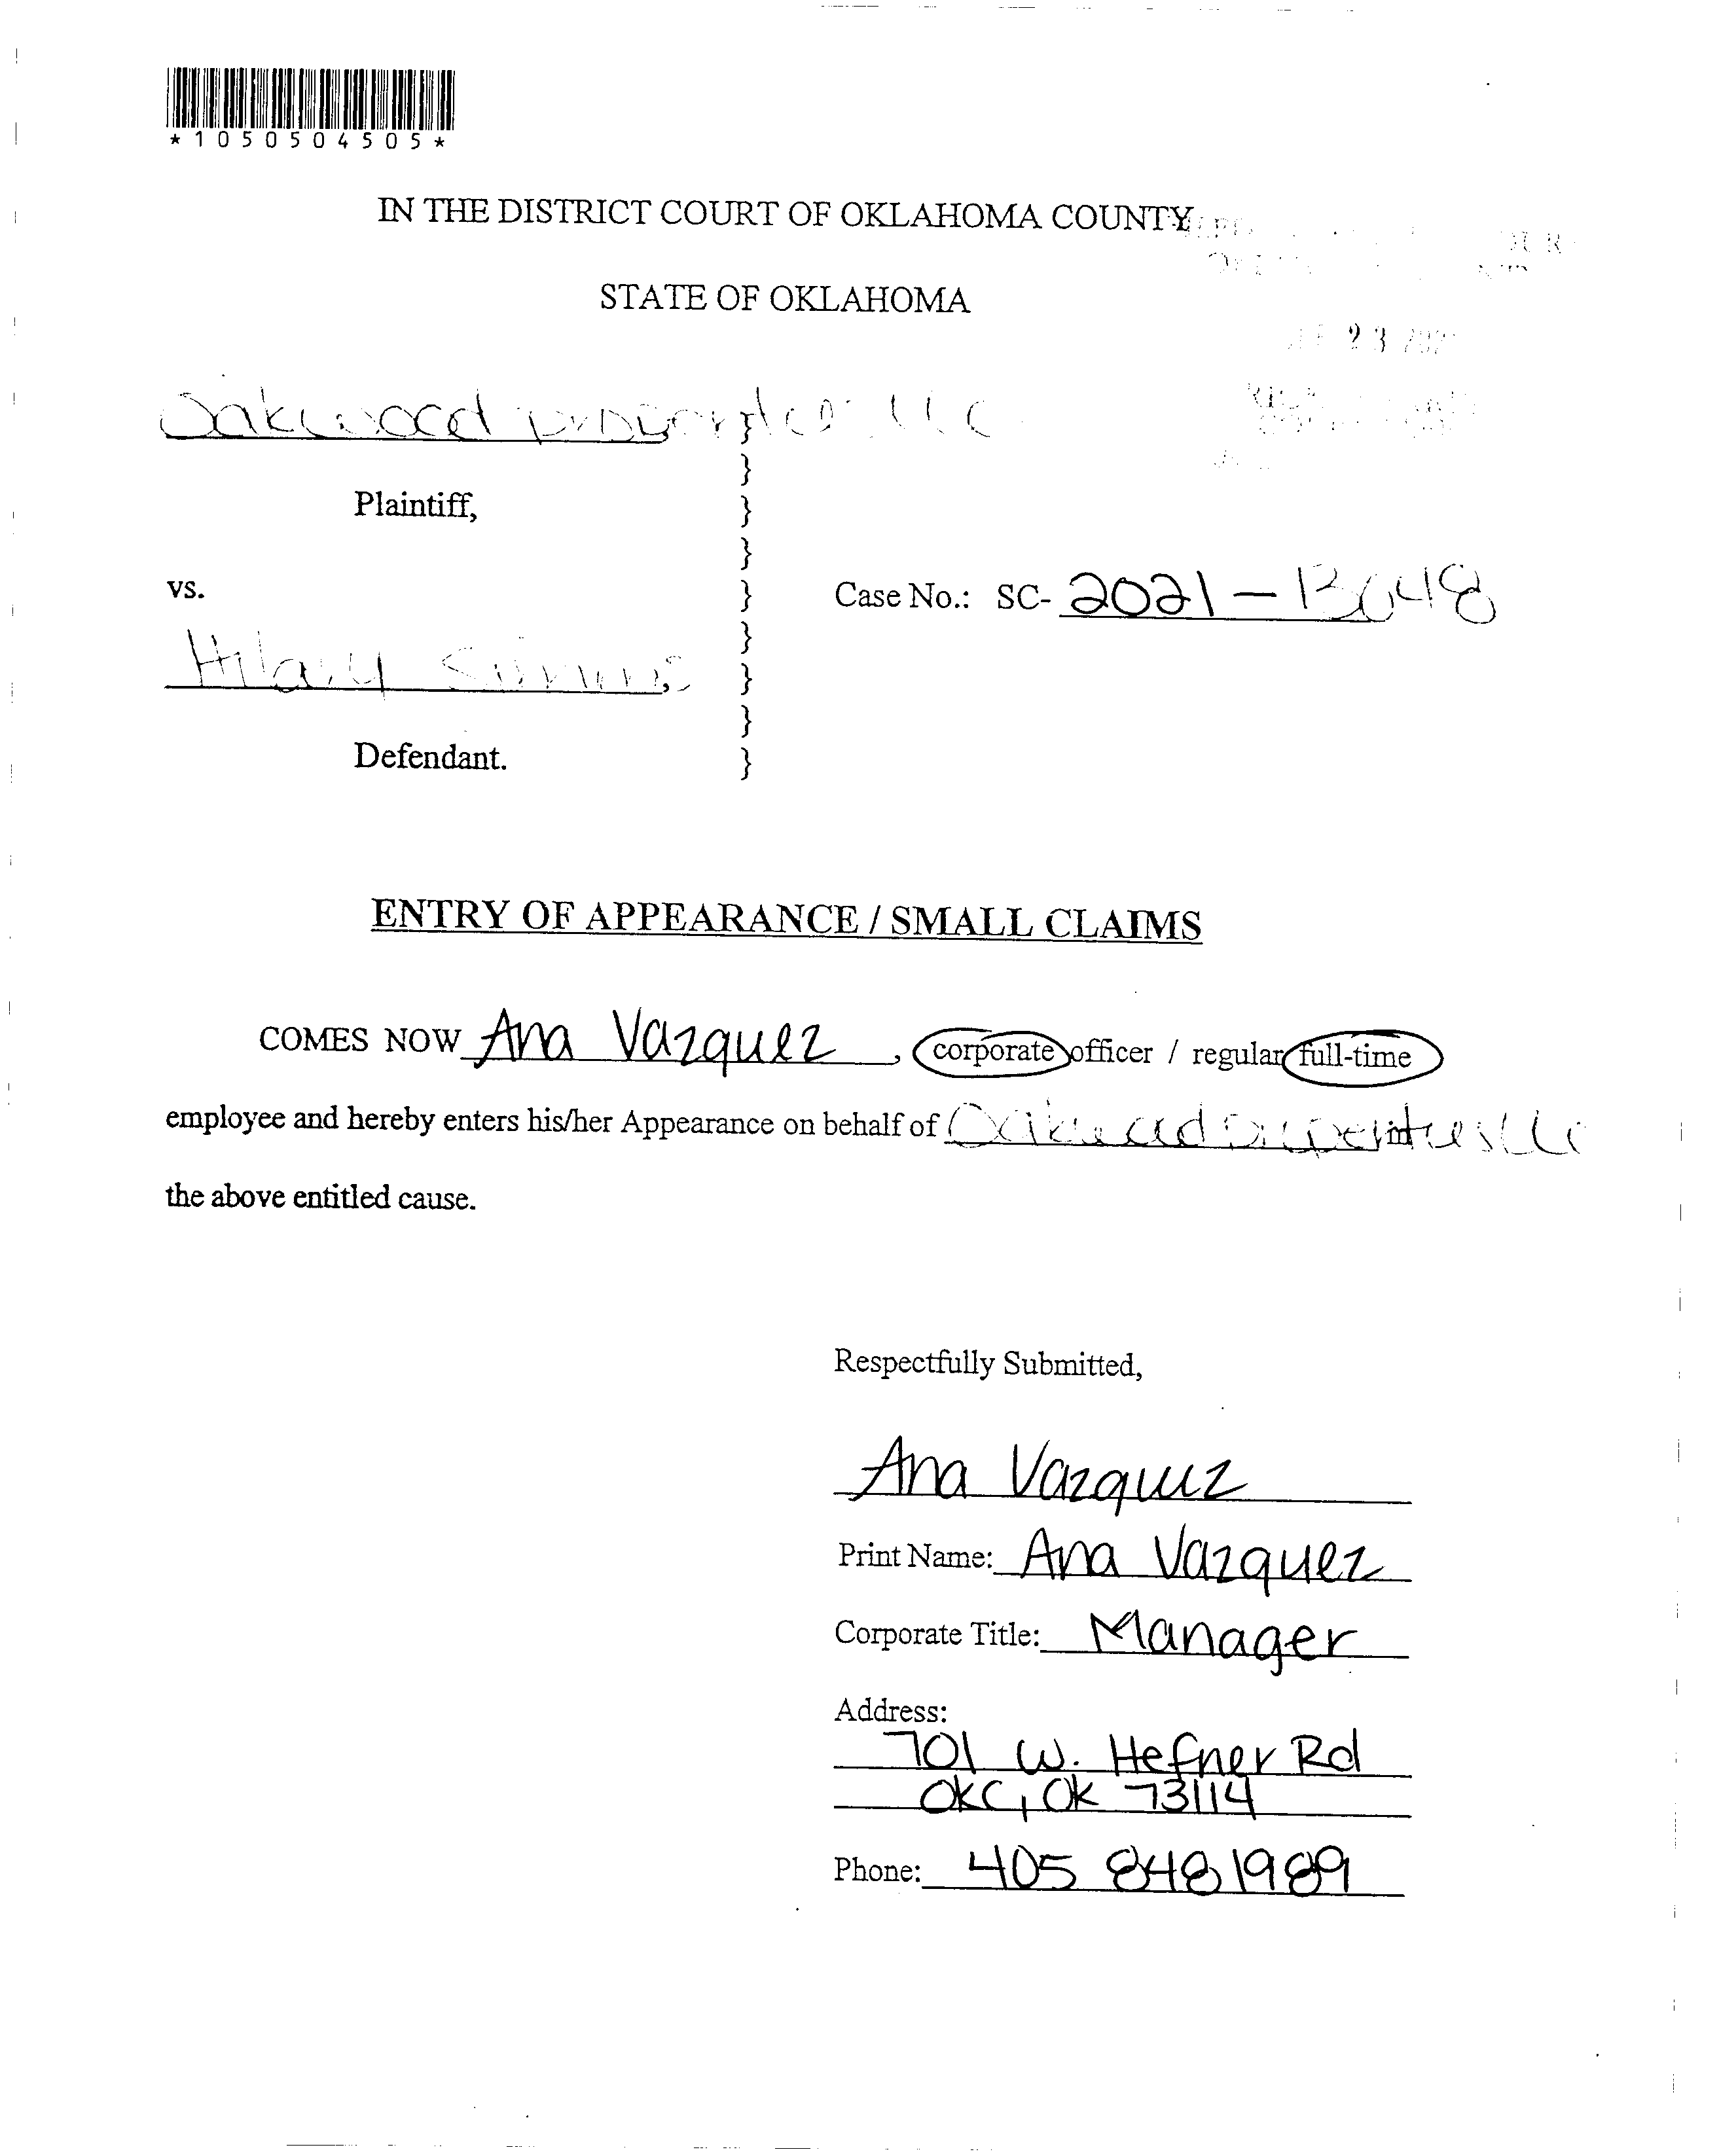 *1050504505*
IN THE DISTRICT COURT OF OKLAHOMA COUNTY
STATE OF OKLAHOMA
23
Oakwood properties llc
}
}
Plaintiff, }
}
vs. } Case No.: SC- 2021-13648
}
Hilary Simms, }
}
Defendant. }
ENTRY OF APPEARANCE / SMALL CLAIMS
COMES NOW Ana Vazquez, corporate officer / regular full-time
employee and hereby enters his/her Appearance on behalf of Oakwood properties llc in
the above entitled cause.
Respectfully Submitted,
Ana Vazquez
Print Name: Ana Vazquez
Corporate Title: Manager
Address:
701 W. Hefner Rd
OKC, OK 73114
Phone: 405 848 1989